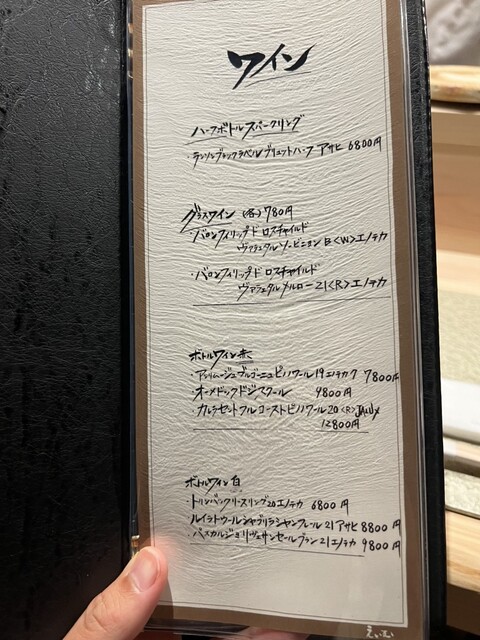 ワイン
ハーフボトルスパークリング
・ランソンブラックラベルブリュットハーフ アサヒ 6800円
グラスワイン (各) 780円
・バロンフィリップド ロスチャイルド
ヴァラエタル ソービニヨン B<W>エノテカ
・バロンフィリップド ロスチャイルド
ヴァラエタル メルロー 21<R>エノテカ
ボトルワイン赤
ブルゴーニュピノノワール19エノテカ 7800円
・オーメドックドジスクール 9800円
・カレラセントラルコーストピノノワール20<R>JALUX
12800円
ボトルワイン白
・トリンバックリースリング20エノテカ 6800円
ルイラトゥールシャブリラシャンフレール21アサヒ 8800円
・パスカルジョリヴェサンセールブラン21エノテカ 9800円